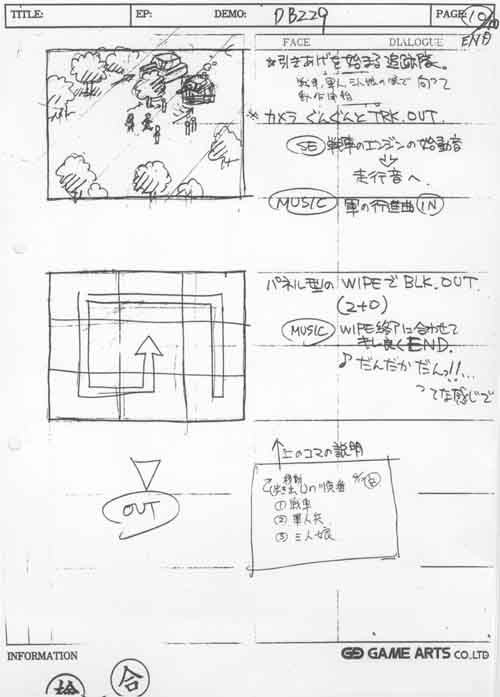 TITLE: EP: DEMO: DB229 PAGE: 10/10
END
FACE DIALOGUE
*引きあげを始まる追跡隊。
戦車、軍人、三人娘の順で 向って
* カメラ ぐんぐんと TRK.OUT.
SE 戦車のエンジンの始動音
走行音へ。
MUSIC 軍の行進曲 IN
パネル型の WIPEで BLK.OUT.
(2+0)
MUSIC WIPE終了に合わせて
きし良くEND.
♪だんだか だんっ!!...
ってな感じで
OUT
↑上のコマの説明
移動
(歩き出し)の順番
①戦車
②軍人兵
③三人娘
INFORMATION
GAME ARTS CO.,LTD
合